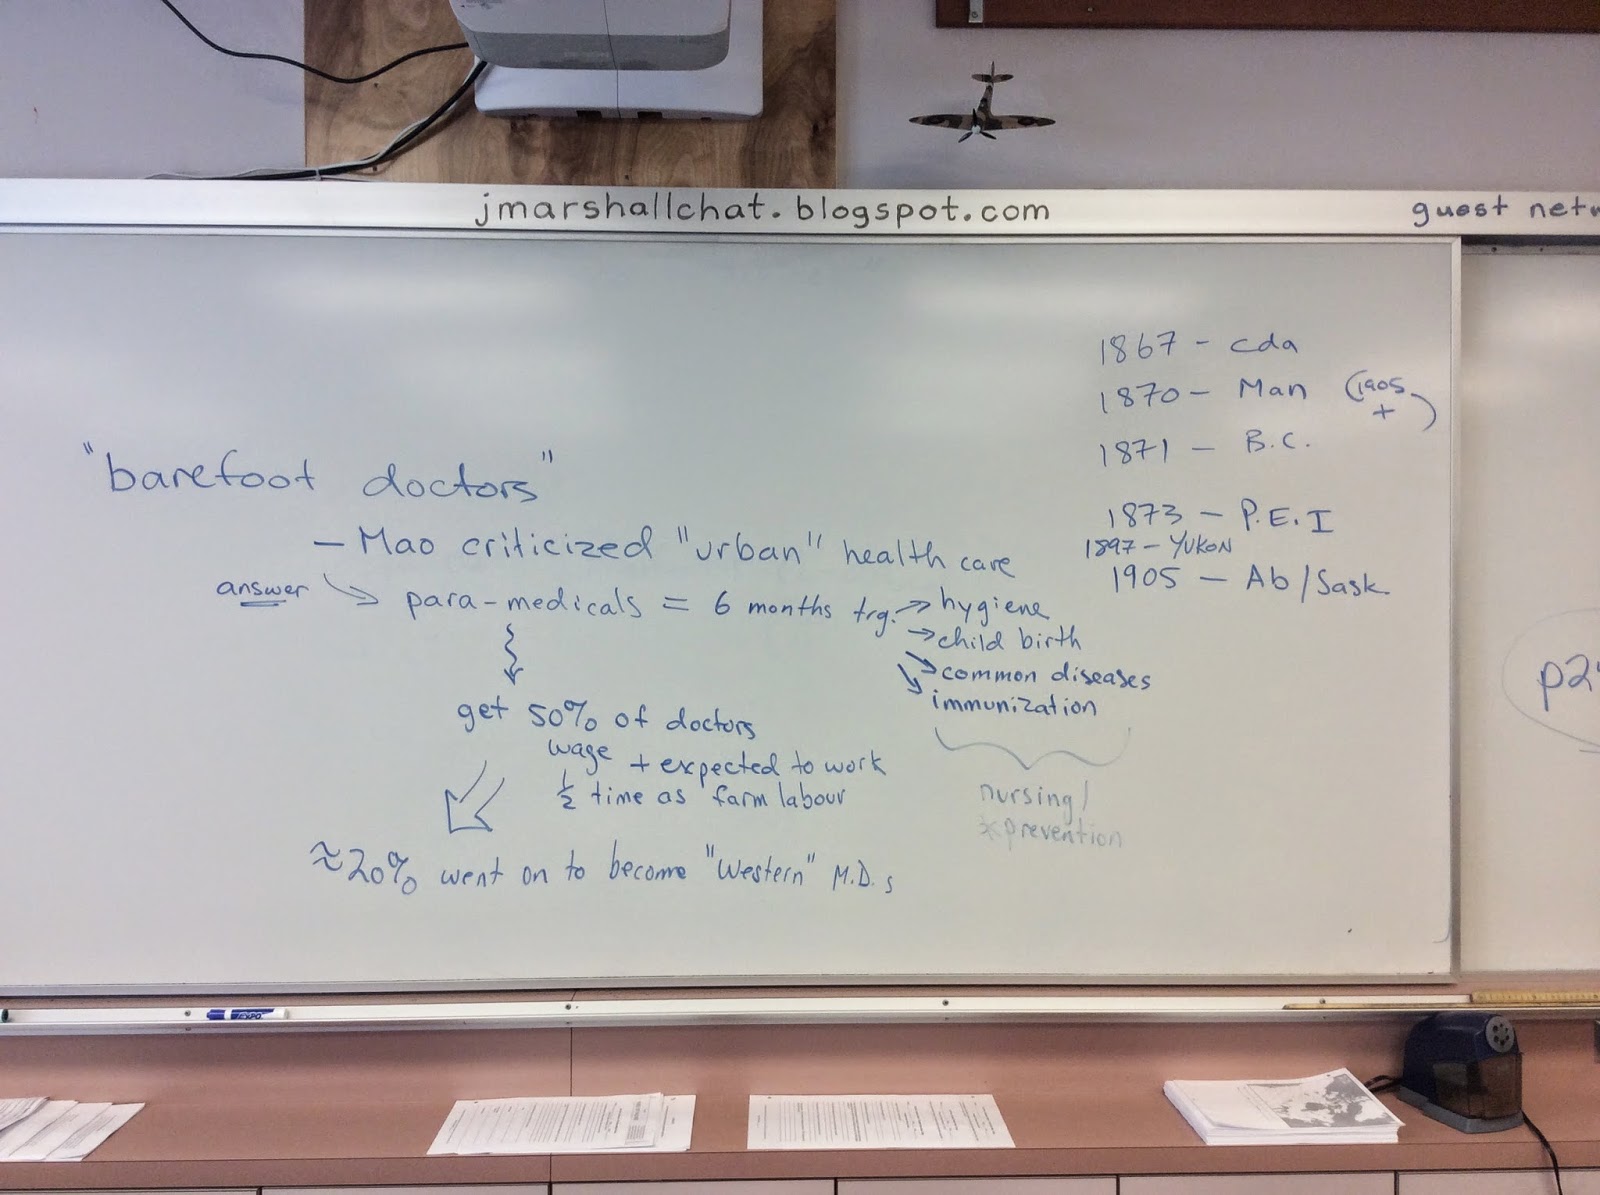 jmarshallchat.blogspot.com
guest netw
"barefoot doctors"
- Mao criticized "urban" health care
answer
para-medicals = 6 months trg. → hygiene
→ child birth
→ common diseases
→ immunization
nursing/
*prevention
get 50% of doctors
wage + expected to work
1/2 time as farm labour
≈20% went on to become "Western" M.D.s
1867 - cda
1870 - Man (1905 +)
1871 - B.C.
1873 - P.E.I
1897 - YUKON
1905 - Ab/Sask.
p2
EXPO